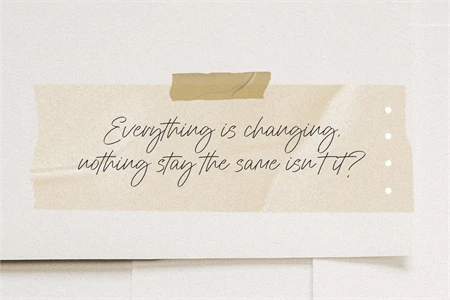 Everything is changing,
nothing stay the same isn't it?